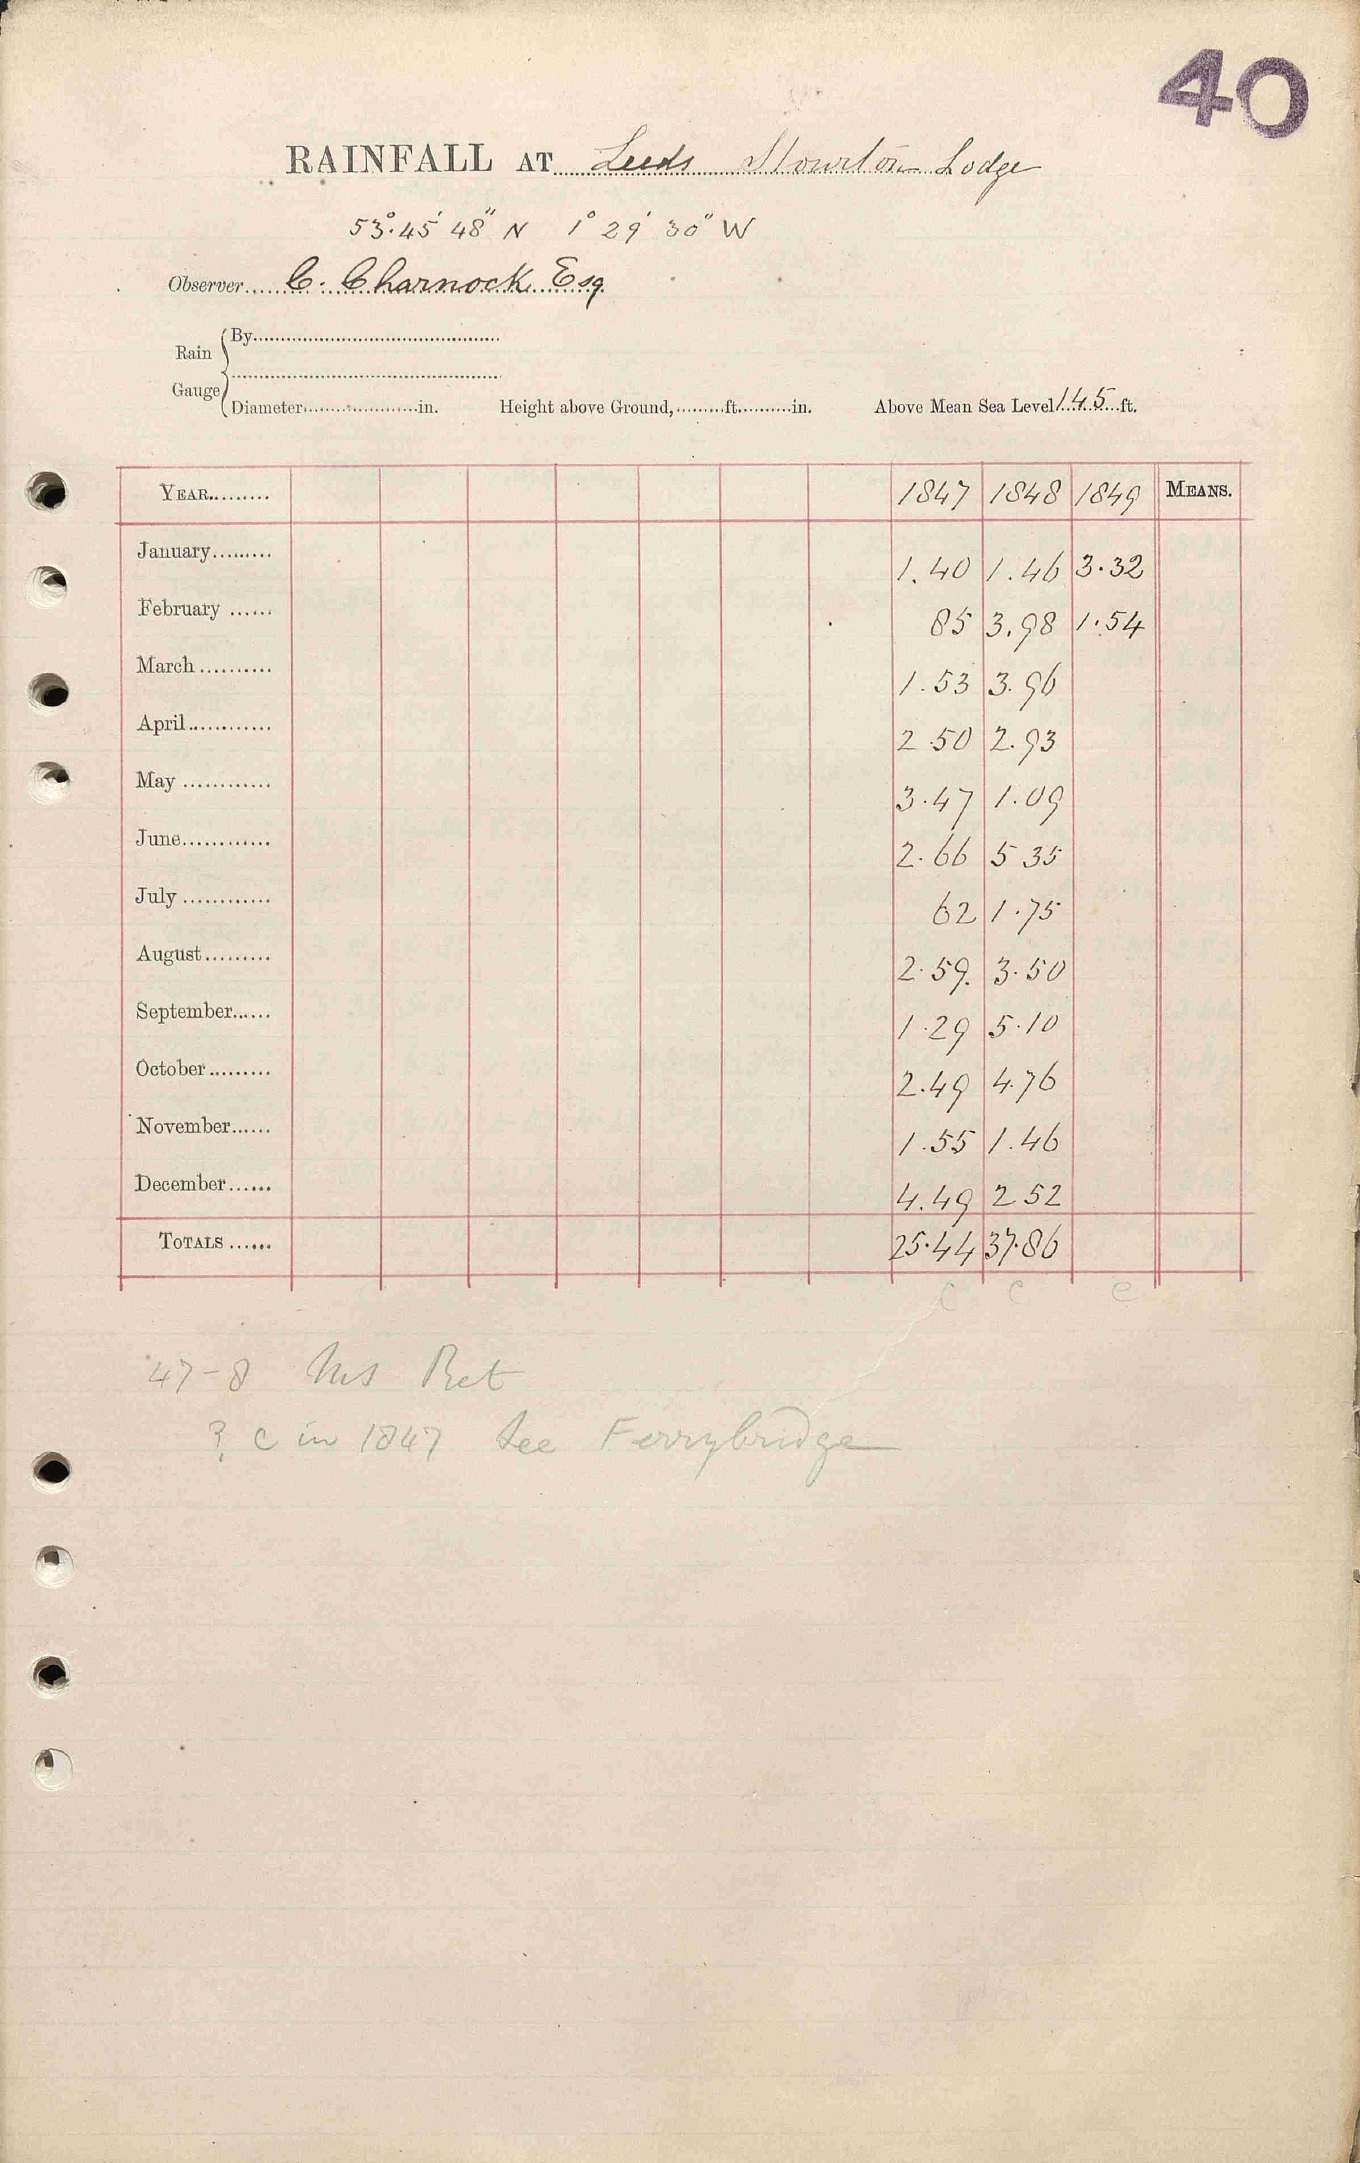 40
RAINFALL AT Leeds Stourton Lodge
53° 45' 48" N 1° 29' 30" W
Observer C. Charnock Esq
Rain Gauge
By
Diameter in. Height above Ground, ft. in. Above Mean Sea Level 145 ft.
YEAR 1847 1848 1849 MEANS.
January 1.40 1.46 3.32
February 85 3.98 1.54
March 1.53 3.96
April 2 50 2.93
May 3.47 1.09
June 2.66 5 35
July 62 1.75
August 2.59 3.50
September 1.29 5.10
October 2.49 4.76
November 1.55 1.46
December 4.49 2 52
TOTALS 25.44 37.86
C C C
47-8 Ms Ret
? C in 1847 See Ferrybridge